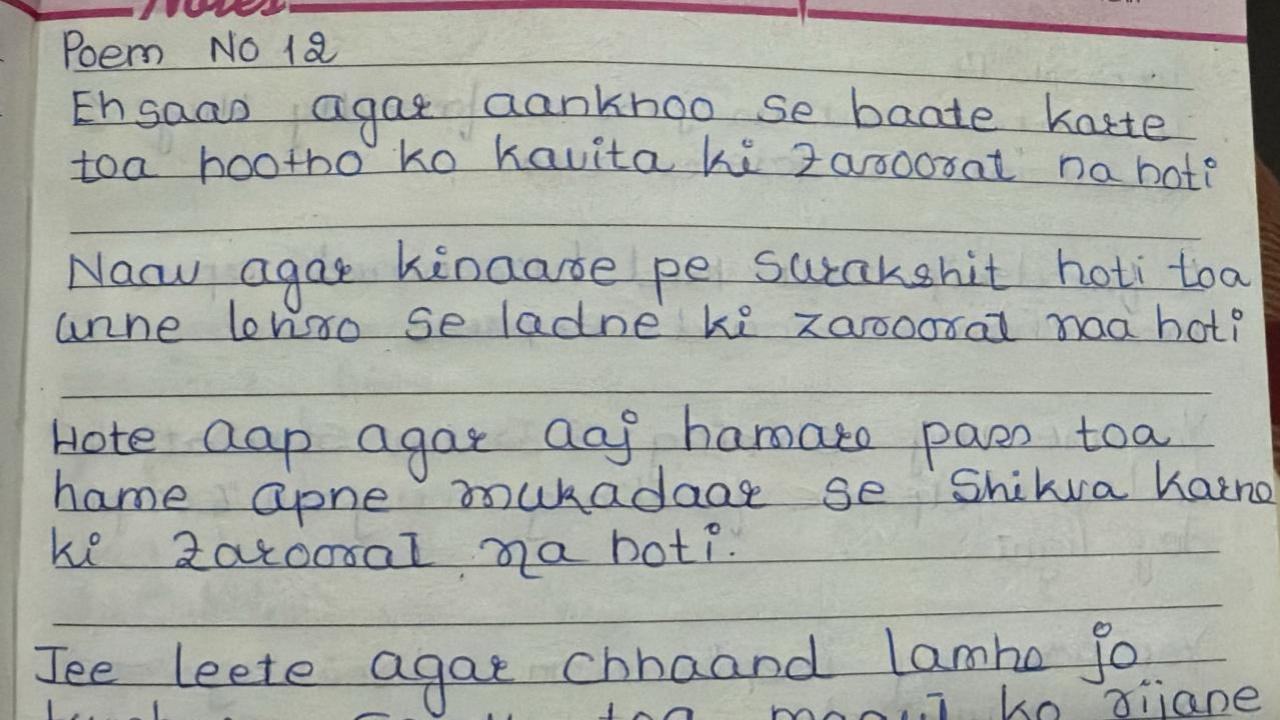 Notes
Poem No 12
Ehsaas agar aankhoo se baate karte
toa hootho ko kavita ki zarooral na hoti
Naav agar kinaare pe surakshit hoti toa
unne lehro se ladne ki zarooral naa hoti
Hote aap agar aaj hamare paas toa
hame apne mukadaar se Shikva karne
ki zarooral na hoti.
Jee leete agar chhaand lamhe jo
toa ko rijane